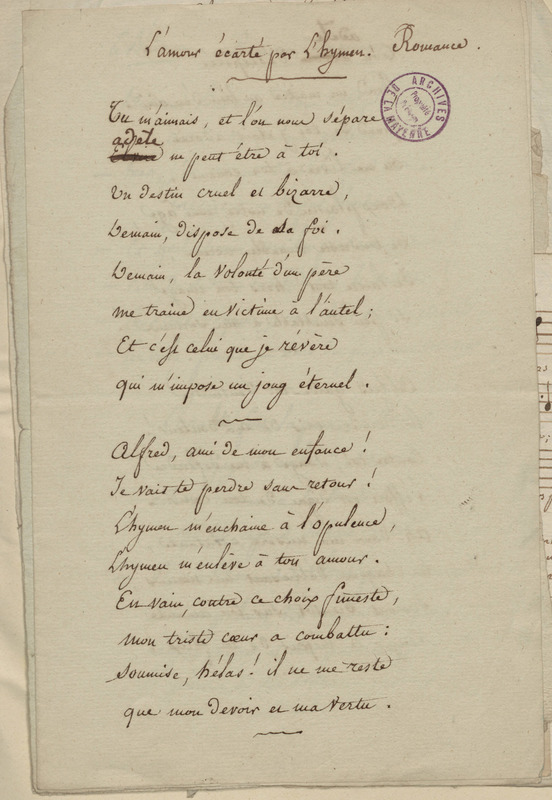 L'amour écarté par L'hymen. Romance.
ARCHIVES DE LA MAYENNE
Tu m'aimais, et l'on nous sépare
adèle
ne peut être à toi.
Un destin cruel et bizarre,
Demain, dispose de sa foi.
Demain, la volonté d'un père
me traine en victime à l'autel;
Et c'est celui que je révère
qui m'impose un joug éternel.
Alfred, ami de mon enfance!
Je vais te perdre sans retour!
L'hymen m'enchaine à l'opulence,
L'hymen m'enlève à ton amour.
En vain, contre ce choix funeste,
mon triste cœur a combattu:
soumise, hélas! il ne me reste
que mon devoir et ma vertu.